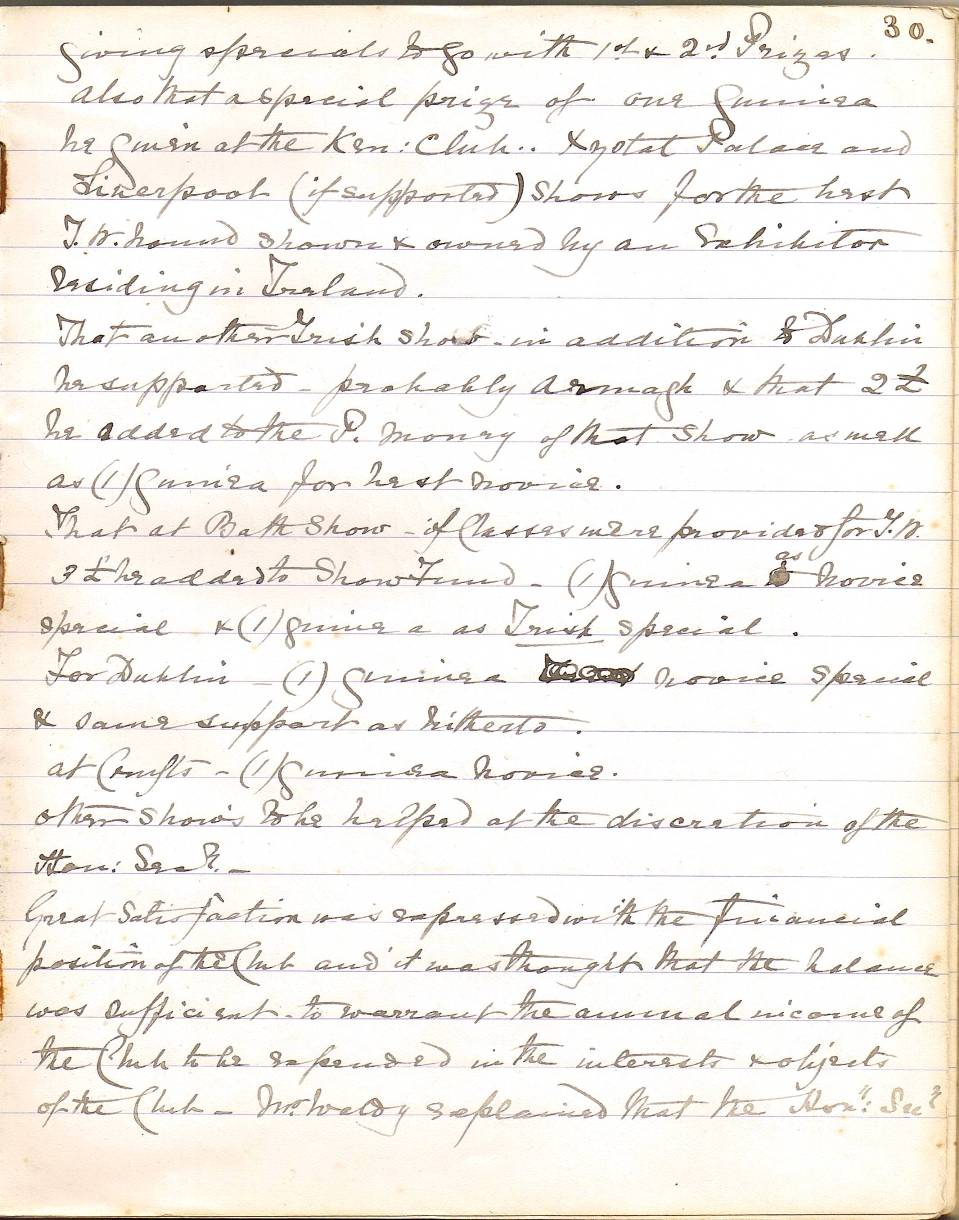 30.
giving specials to go with 1st & 2nd Prizes.
also that a special prize of one Guinea
be given at the Ken: Club.. Xystal Palace and
Liverpool (if supported) Shows for the best
I.W. hound shown & owned by an Exhibitor
residing in Ireland.
That an other Irish Show - in addition to Dublin
be supported - probably Armagh & that 2£
be added to the P. Money of that Show as well
as (1) Guinea for best Novice.
That at Bath Show - if Classes were provided for I.W.
3£ be added to Show Fund - (1) Guinea as Novice
special & (1) guinea as Irish special.
For Dublin - (1) Guinea novice special
& same support as hitherto.
at Crufts - (1) Guinea Novice.
other Shows to be helped at the discretion of the
Hon: Secy. -
Great Satisfaction was expressed with the financial
position of the Club and it was thought that the balance
was sufficient - to warrant the annual income of
the Club to be expended in the interests & objects
of the Club - Mr. Waldy explained that the Hon: Secy